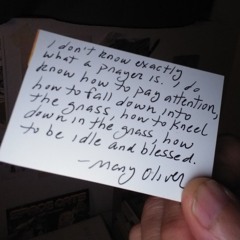 I don't know exactly
what a prayer is. I do
know how to pay attention,
how to fall down into
the grass, how to kneel
down in the grass, how
to be idle and blessed.
- Mary Oliver